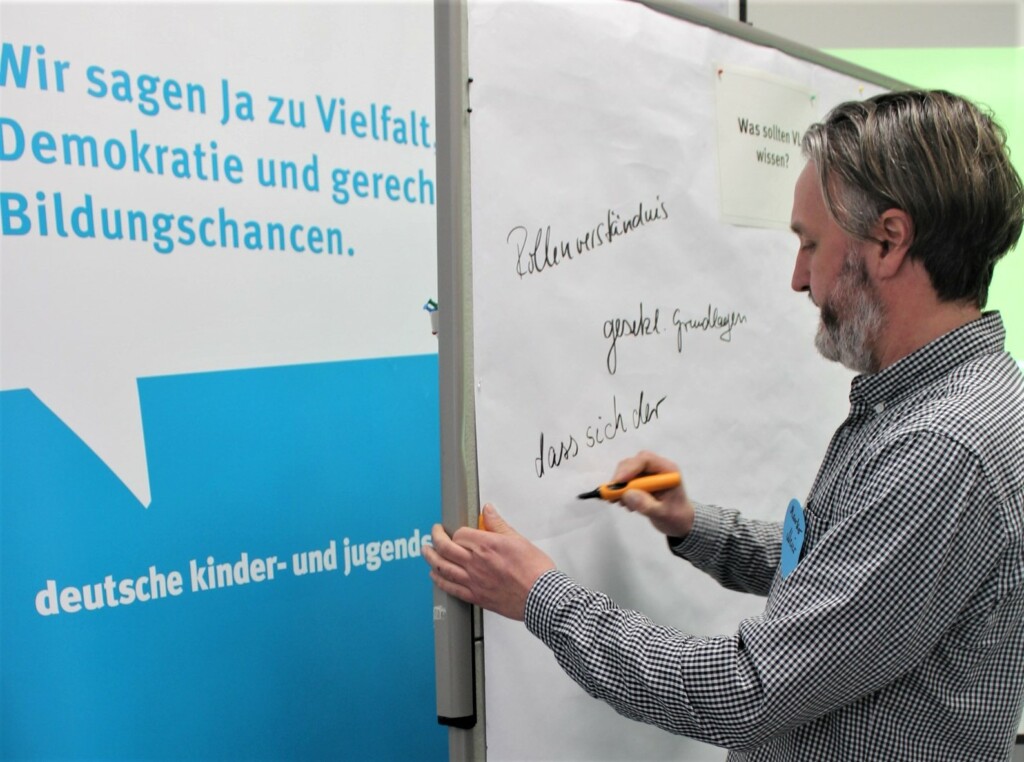 Wir sagen Ja zu Vielfalt,
Demokratie und gerech
Bildungschancen.
deutsche kinder- und jugends
Was sollten VL
wissen?
Rollenverständnis
gesetzl. Grundlagen
dass sich der